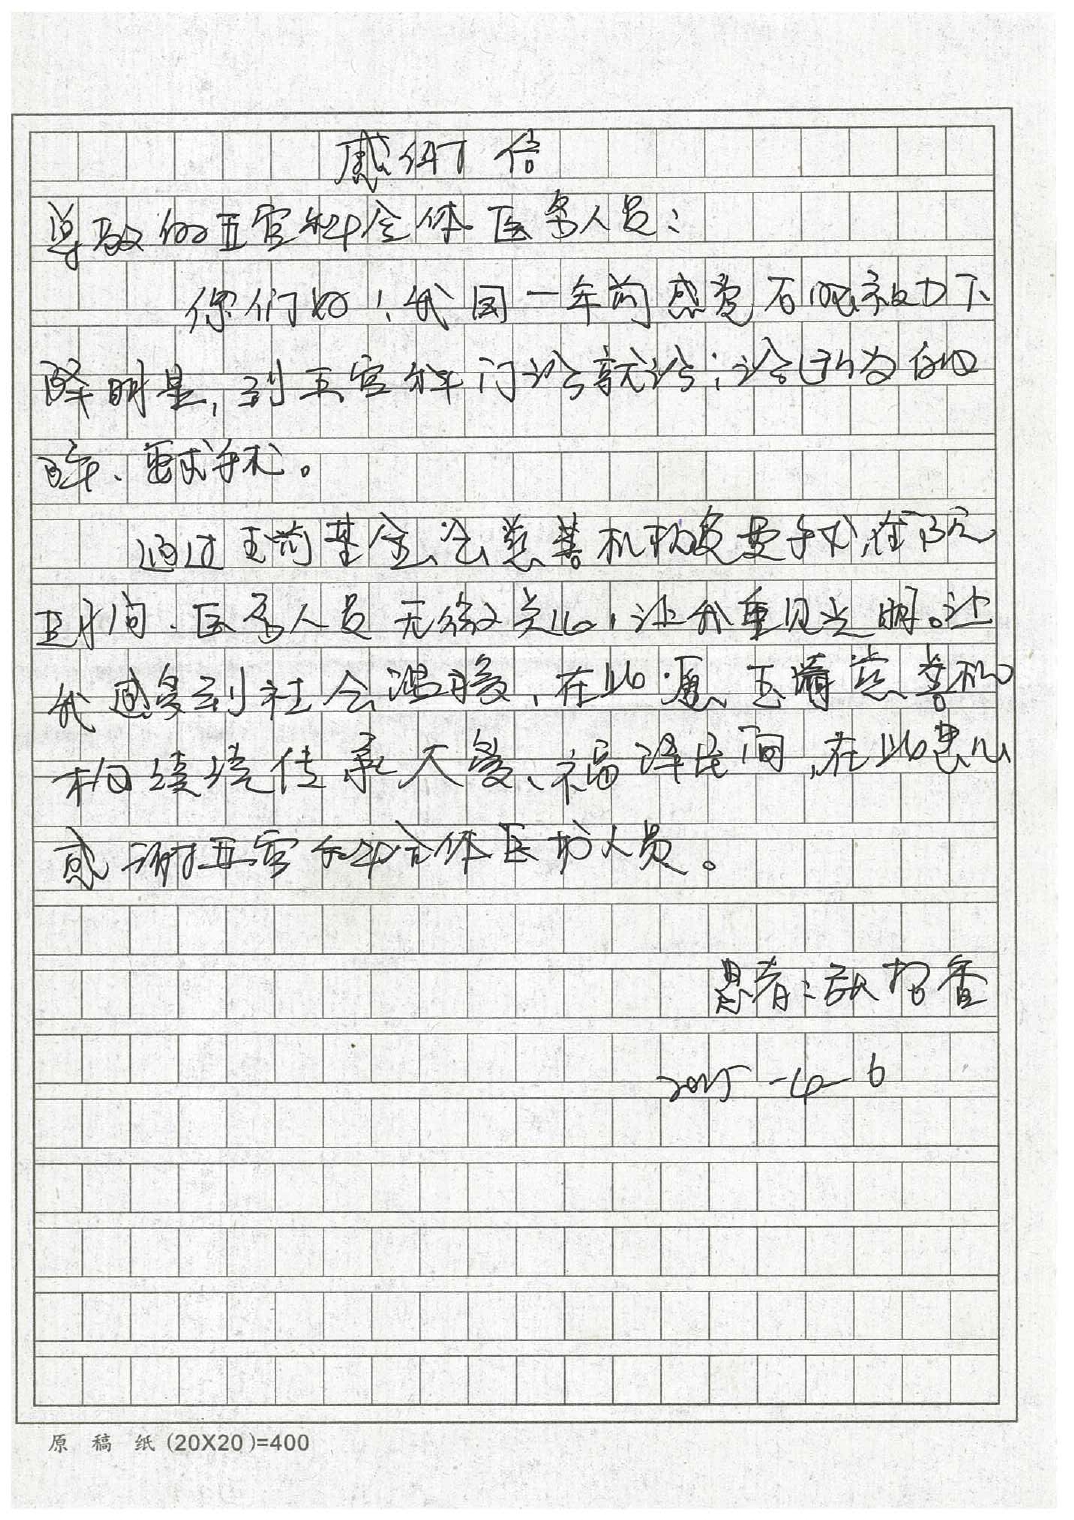 感谢信
尊敬的五官科全体医务人员：
你们好！我因一年前感觉右眼视力下
降明显，到五官科门诊就诊；诊断为白内
障、要求手术。
通过玉清基金会慈善机构接受手术，在院
期间、医务人员无微关心，让我重见光明。让
我感受到社会温暖，在此愿玉清慈善机
构继续传承大爱、福泽民间，在此衷心
感谢五官科全体医护人员。
患者：
2015-4-6
原稿纸(20X20)=400